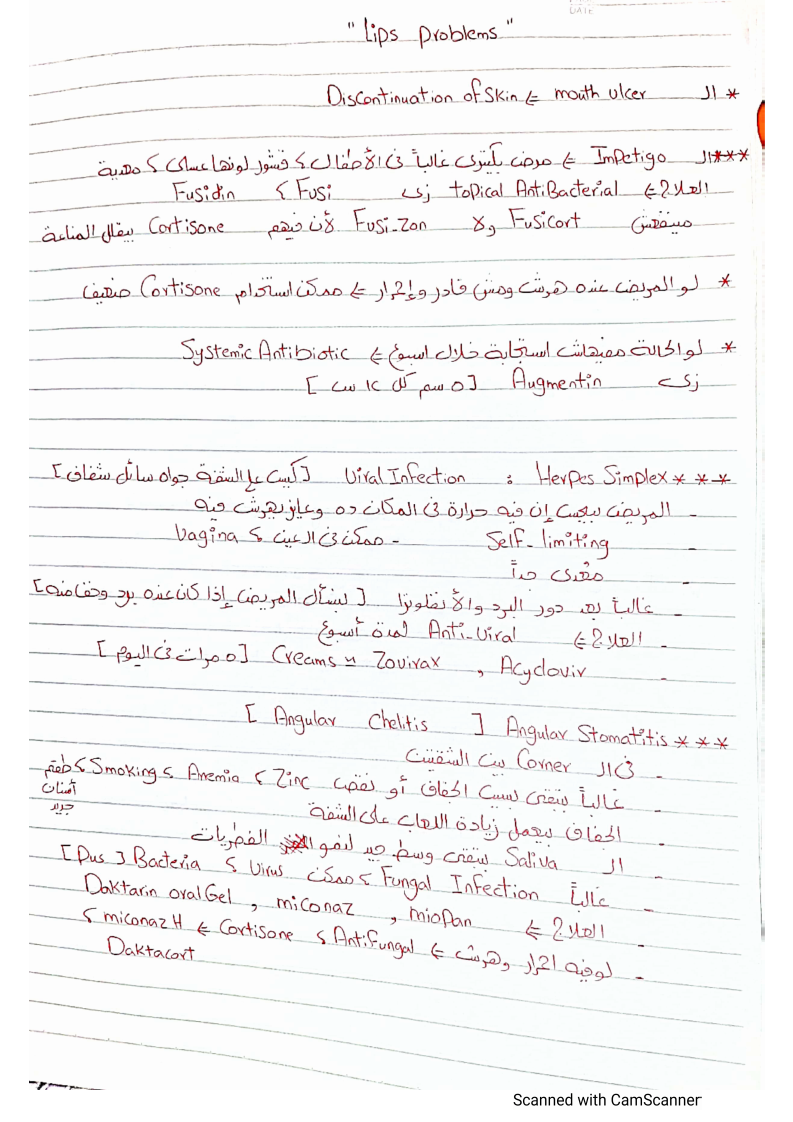 DATE
"Lips Problems"
* الـ mouth ulcer ⇐ Discontinuation of Skin
***الـ Impetigo ⇐ مرض بكتيرى غالباً فى الأطفال ؟ قشور لونها عسلى ؟ معدية
العلاج ⇐ topical AntiBacterial زى Fusi ؟ Fusidin
مينفعش Fusicort ولا Fusi-Zon لأن فيهم Cortisone بيقلل المناعة
* لو المريض عنده هرش ومش قادر وإحمرار ⇐ ممكن استخدام Cortisone ضعيف
* لو الحالة مفيهاش استجابة خلال اسبوع ⇐ Systemic Antibiotic
زى Augmentin [٥ سم كل ١٢ س]
*** Herpes Simplex : Viral Infection [كيس ع الشفة جواه سائل شفاف]
- المريض بيحس إن فيه حرارة فى المكان ده وعايز يهرش فيه
- Self-limiting - ممكن فى العين ؟ Vagina
- مُعدى جداً
- غالباً بعد دور البرد والأنفلونزا [لنسأل المريض إذا كان عنده برد وخف منه]
- العلاج ⇐ Anti-Viral لمدة أسبوع
- Acyclovir , Zovirax Creams [٥ مرات فى اليوم]
*** Angular Stomatitis [Angular Chelitis]
- فى الـ Corner بين الشفتين
- غالباً بتبقى بسبب الجفاف أو نقص Zinc ؟ Anemia ؟ Smoking ؟ طقم أسنان جديد
الجفاف بيعمل زيادة اللعاب على الشفة
الـ Saliva بتبقى وسط جيد لنمو الفطريات
- غالباً Fungal Infection ؟ ممكن Virus ؟ Bacteria [Pus]
- العلاج ⇐ miopan , miconaz , Daktarin oral Gel
- لو فيه احمرار وهرش ⇐ AntiFungal ؟ Cortisone ⇐ miconaz H ؟ Daktacort
Scanned with CamScanner